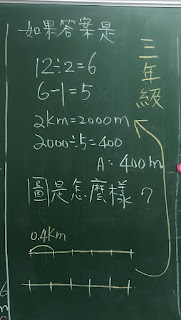 如果答案是
三年級
12÷2=6
6-1=5
2km=2000m
2000÷5=400
A:400m
圖是怎麼樣?
0.4km